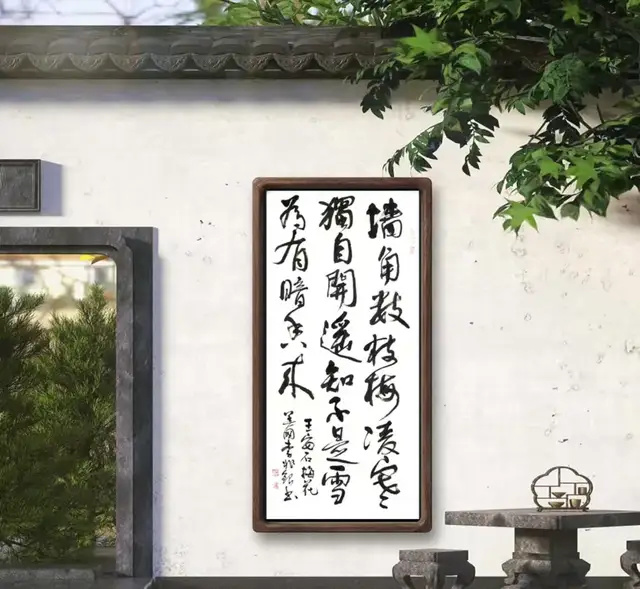 墙角数枝梅凌寒
獨自開遥知不是雪
為有暗香来
王安石梅花